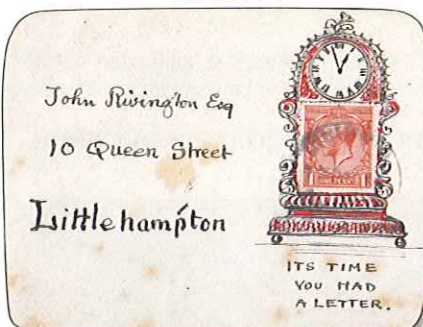 John Rivington Esq
10 Queen Street
Littlehampton
ITS TIME
YOU HAD
A LETTER.